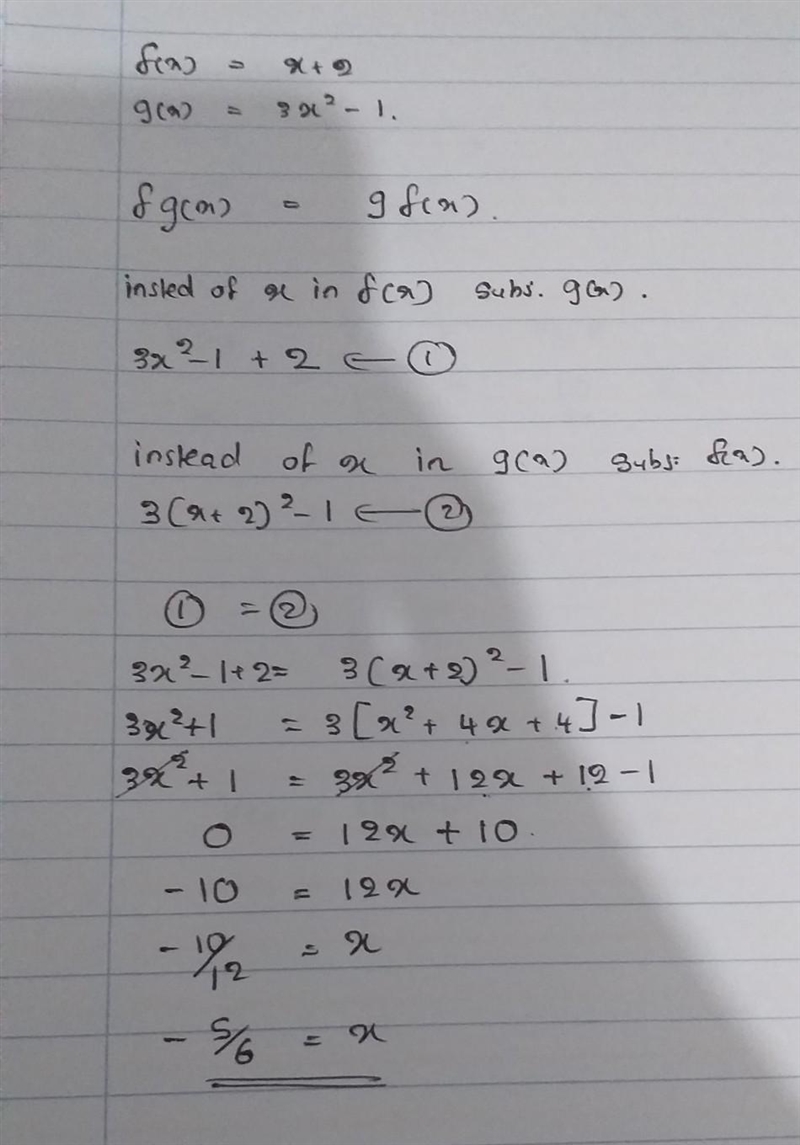 f(x) = x+2
g(x) = 3x² - 1.
fg(x) = g f(x).
insted of x in f(x) subs. g(x).
3x²-1 + 2 ← ①
instead of x in g(x) subs: f(x).
3(x+2)²-1 ← ②
① = ②
3x²-1+2= 3(x+2)²-1.
3x²+1 = 3[x²+4x+4]-1
3x²+1 = 3x²+12x+12-1
0 = 12x+10.
-10 = 12x
-10/12 = x
-5/6 = x